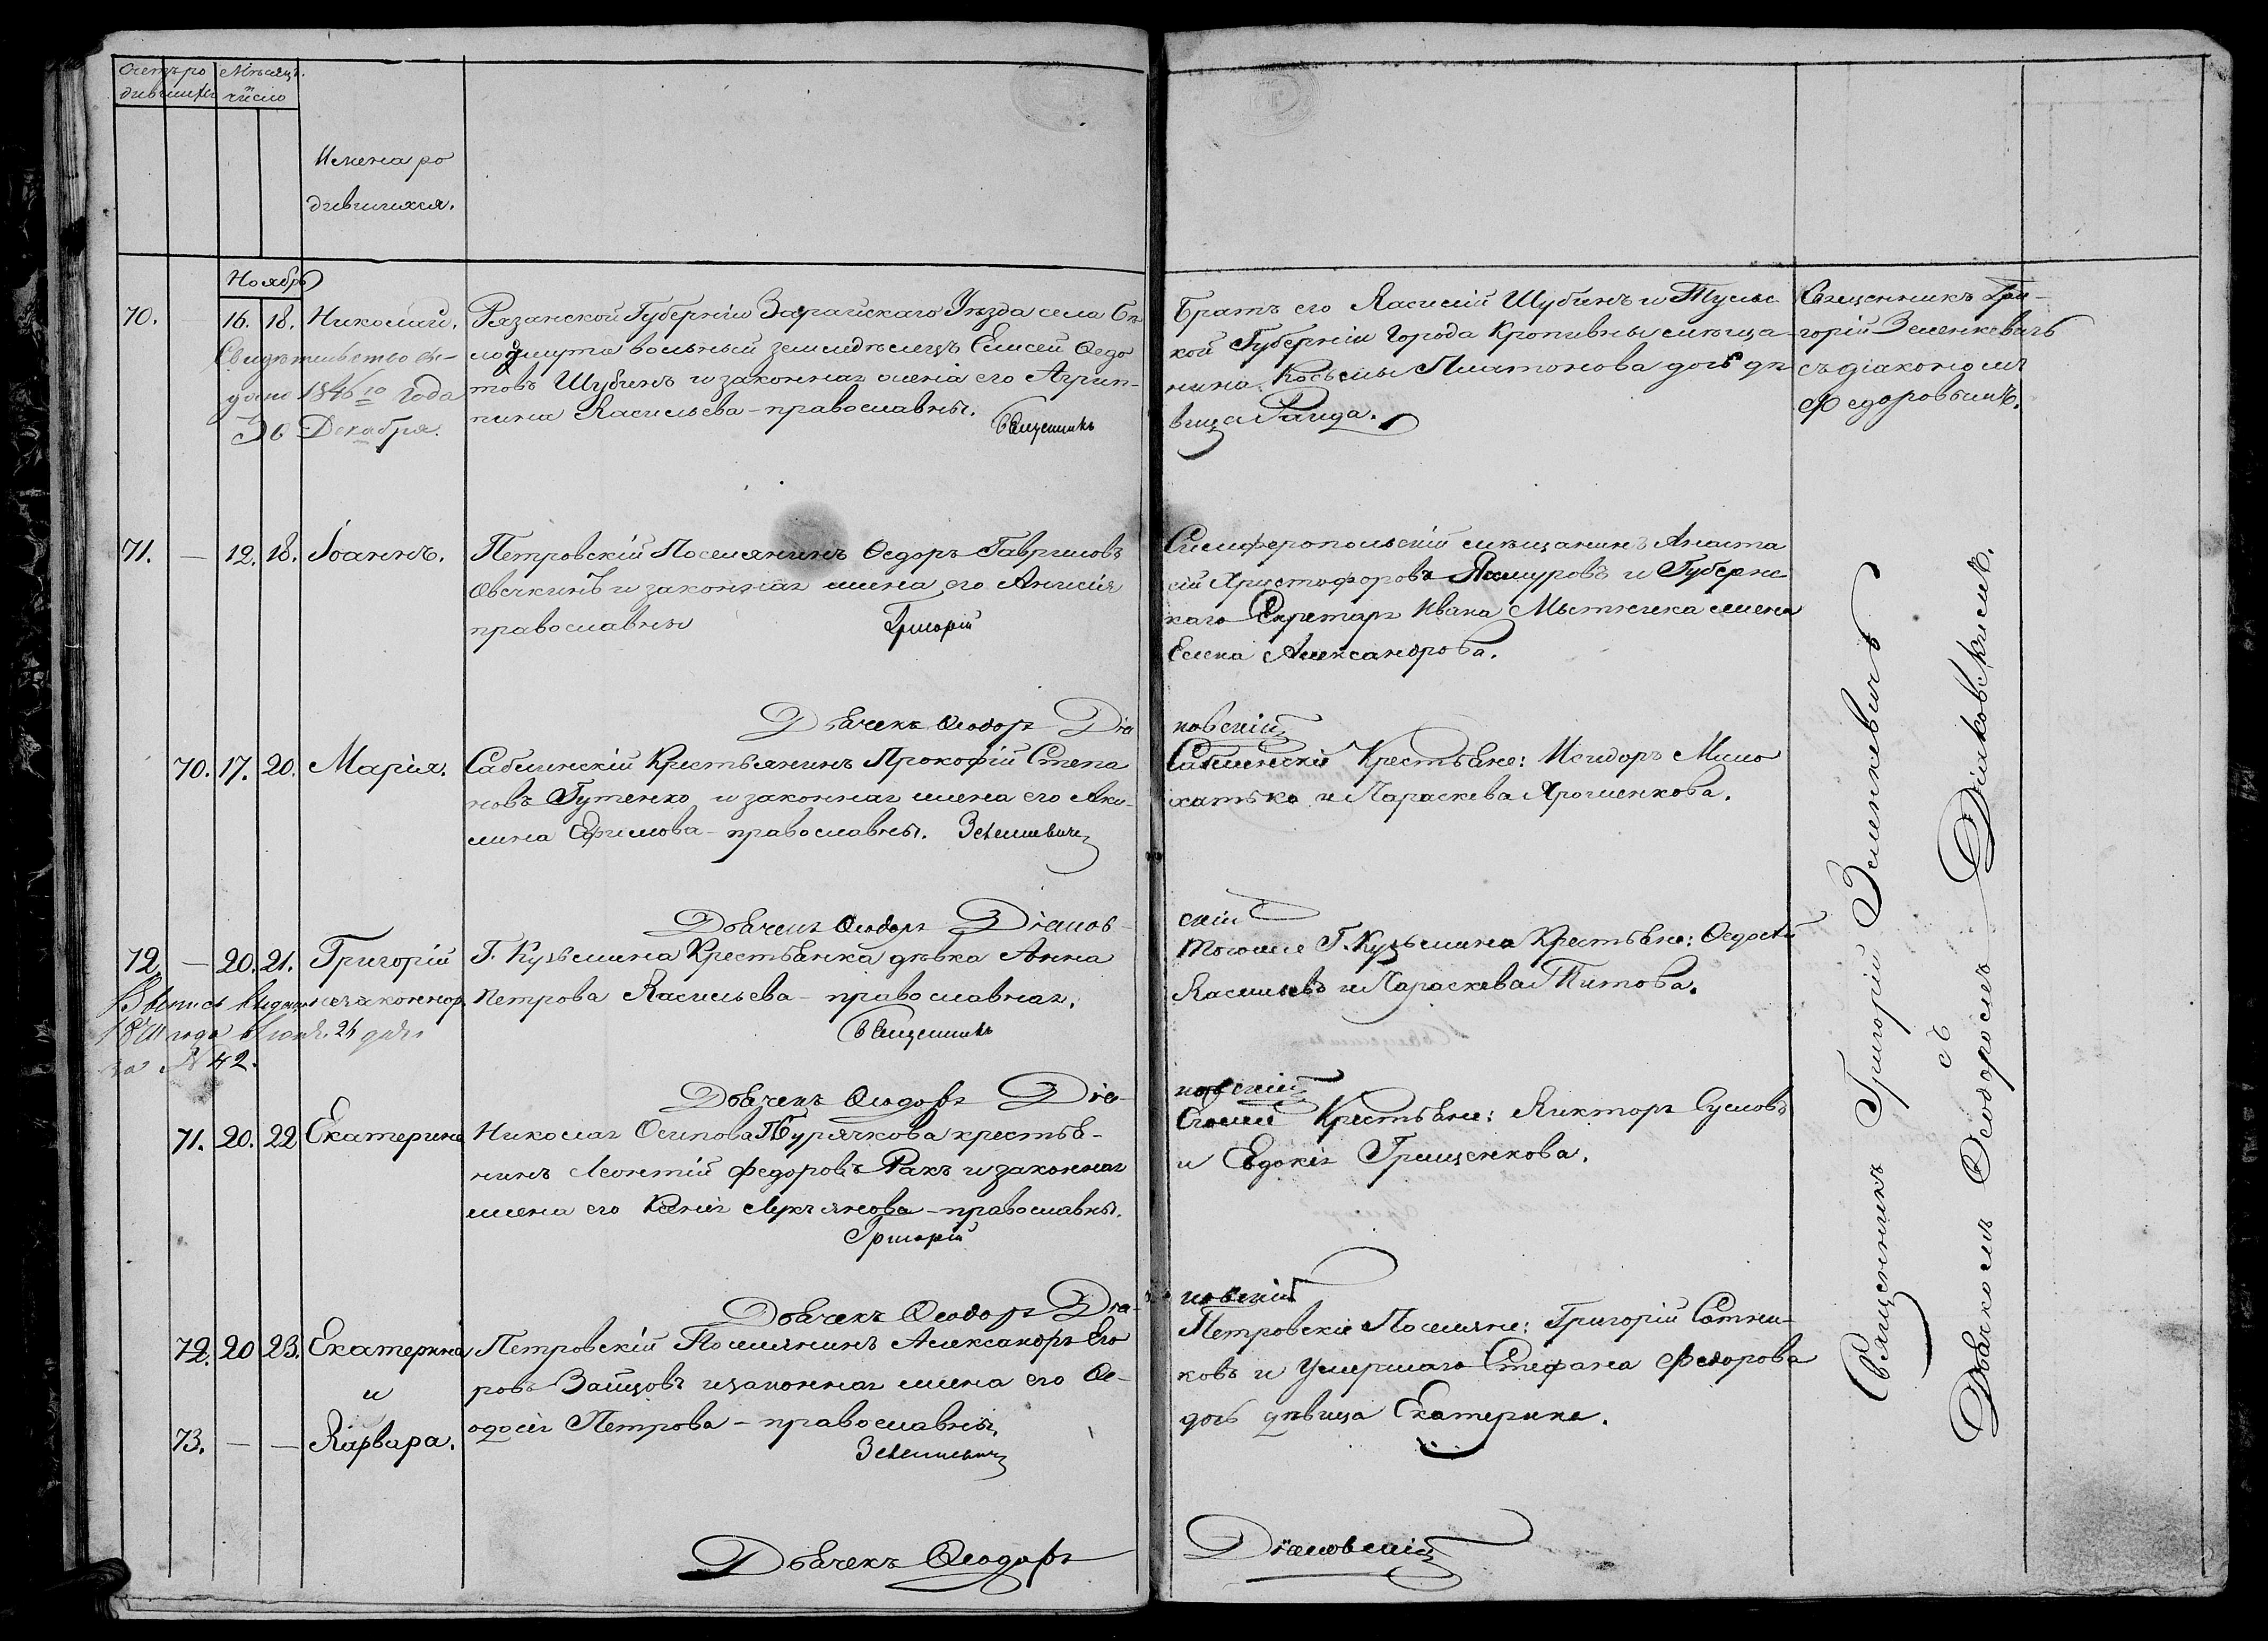 Счетъ ро
дившихся
Мѣсяцъ.
число
Имена ро
дившихся.
Ноябрь
70.
16. 18. Николай.
Свидѣтельство вы-
дано 1846го года
30 Декабря.
Рязанской Губерніи Зарайскаго Уѣзда села Бѣ
лоомута вольный земледѣлецъ Елисей Ѳедо
товъ Шубинъ и законная жена его Агрип-
пина Васильева - православны.
Священникъ
Братъ его Василій Шубинъ и Тульс
кой Губерніи Города Кропивны мѣща-
нина Косьмы Платонова дочь дѣ
вица Раида.
Священникъ Гри-
горій Зеленкевичъ
съ діакономъ
Ѳедоровымъ.
71. — 12. 18. Іоаннъ.
Петровскій Поселянинъ Ѳедоръ Гавриловъ
Овечкинъ и законная жена его Анисія
православны
Григорій
Симферопольскій мѣщанинъ Анаста
сій Христофоровъ Яхмуровъ и Губернс
каго Секретаря Ивана жена
Елена Александрова.
Дьячекъ Ѳеодоръ Діа
ковскій
70. 17. 20. Марія.
Саблинскій Крестьянинъ Прокофій Степа
новъ Гутенко и законная жена его Аки-
лина Ефимова - православны. Зеленкевичъ
Саблинскіе Крестьяне: Исидоръ Мило
хатько и Параскева Ярошенкова.
Дьячекъ Ѳеодоръ Діаков-
скій
72. — 20. 21. Григорій
незаконнор.
24 дня
за № 42.
Г. Кузьмина Крестьянка дѣвка Анна
Петрова Васильева - православная.
Священникъ
Тогоже Г. Кузьмина Крестьяне: Ѳедосѣй
Васильевъ и Параскева Титова.
Дьячекъ Ѳеодоръ Діа-
ковскій
71. 20. 22 Екатерина
Николая Осипова Бурячкова крестья-
нинъ Леонтій Федоровъ Ракъ и законная
жена его Ксенія Лукъянова - православны.
Григорій
Егоже Крестьяне: Викторъ Сусловъ
и Евдокія Грищенкова.
Дьячекъ Ѳеодоръ Діа-
ковскій
72. 20 23. Екатерина
и
73. — — Варвара.
Петровскій Поселянинъ Александръ Его
ровъ Зайцовъ и законная жена его Ѳе-
одосія Петрова - православны.
Зеленкевичъ
Петровскіе Поселяне: Григорій Сотни-
ковъ и Умершаго Стефана Федорова
дочь дѣвица Екатерина.
Дьячекъ Ѳеодоръ
Діаковскій
Священникъ Григорій Зеленкевичъ
съ
Дьячкомъ Ѳеодоромъ Діаковскимъ.